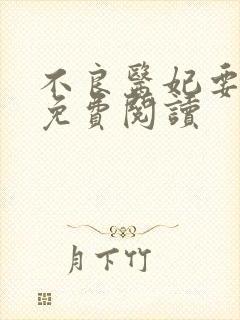 不良醫妃要
免費閱讀
月下竹